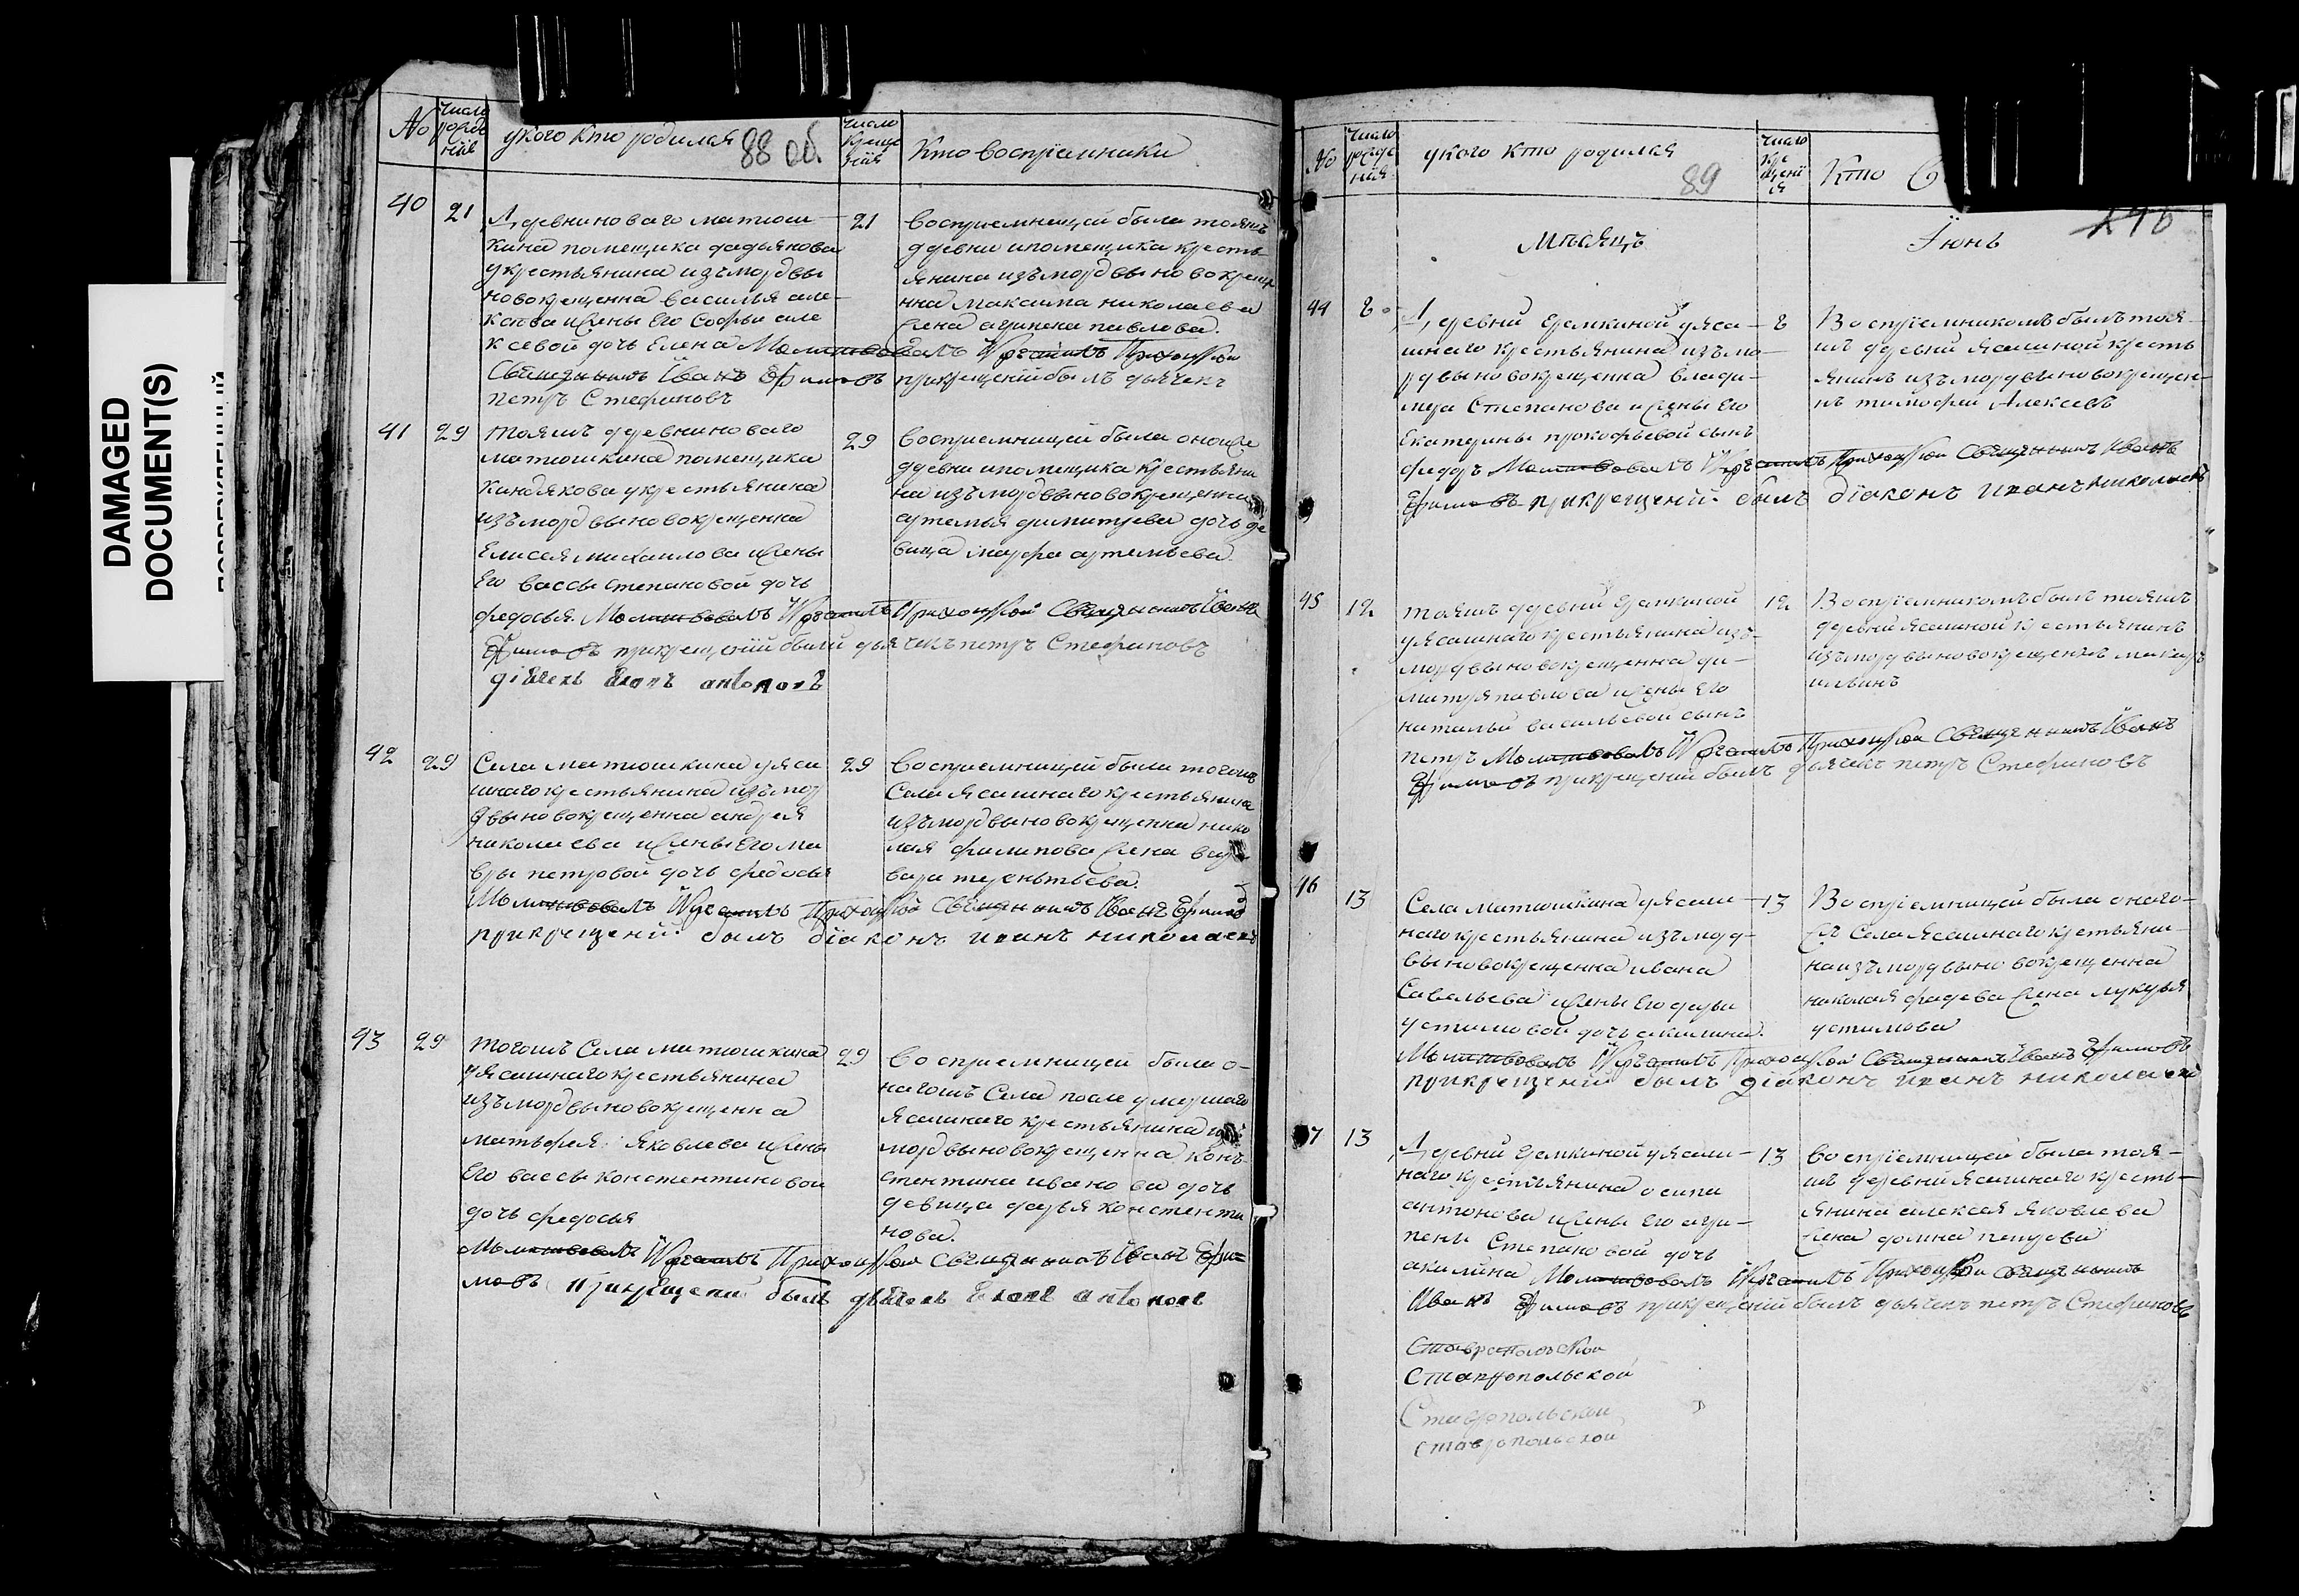 DAMAGED
DOCUMENT(S)
No
число рожде нiя
у кого кто родился
88 об.
число креще нiя
Кто воспрiемники
40
21
Д, деревни новаго матюш
кина помещика фадьянова
у крестьянина изъ мордвы
новокрещенна василья але
ксѣва и жены Его Софьи але
ксевой дочь Елена Молитвовалъ И Крестилъ Приходской
Священникъ Иванъ Ефимовъ прикрещенiи былъ дьячекъ
петръ Стефановъ
21
восприемницей была тояжъ
ддевни и помещика кресть
янина изъ мордвы новокреще
нна максима николаева
жена агрипена павлова.
41
29
тояжъ ддевни новаго
матюшкина помещика
Киндякова у крестьянина
изъ мордвы новокрещенна
Елисея михаилова и жены
Его вассы степановой дочь
федосья. Молитвовалъ И Крестилъ Приходской Священникъ Иванъ
Ефимовъ прикрещенiи были дьячекъ петръ Стефановъ
дiячекъ Iвонъ антоновъ
29
восприемницей была оной же
ддевни и помещика крестьяни
на изъ мордвы новокрещенна
артемья димитрева дочь де
вица марфа артемьева.
42
29
Села матюшкина у яса
шнаго крестьянина изъ мор
двы новокрещенна андрея
николаева и жены Его ма
вры петровой дочь федосья
Молитвовалъ И Крестилъ Приходской Священникъ Иванъ Ефимовъ
прикрещенiи былъ дiаконъ иванъ николаевъ
29
восприемницей была тогожъ
Села ясашнаго крестьянина
изъ мордвы новокрещенна нико
лая филипова жена вар
вара терентьева.
43
29
тогожъ Села матюшкина
у ясашнаго крестьянина
изъ мордвы новокрещенна
матьфея Яковлева и жены
Его вассы констентиновой
дочь федосья
Молитвовалъ И Крестилъ Приходской Священникъ Иванъ Ефи-
мовъ прикрещенiи былъ дьячекъ Iвонъ антоновъ
29
восприемницей была о-
нагожъ Села после умершаго
ясашнаго крестьянина изъ
мордвы новокрещенна кон-
стентина иванова дочь
девица дарья констенти
нова.
No
число рожде нiя
у кого кто родился
89
число кре щенi я
Кто
Мѣсяцъ
Iюнь
44
8
Д, деревни Еремкиной у яса-
шнаго крестьянина изъ мо-
рдвы новокрещенна влади-
мера Степанова и жены Его
Екатерины прокофьевой сынъ
федоръ Молитвовалъ И Крестилъ Приходской Священникъ Иванъ
Ефимовъ прикрещенiи былъ дiаконъ иванъ николаевъ
8
Воспрiемникомъ былъ тоя-
жъ деревни ясашной кресть
янинъ изъ мордвы новокрещен-
нъ тимофей Алексевъ
45
12
тояжъ деревни Еремкиной
у ясашнаго крестьянина изъ
мордвы новокрещенна ди-
митрия павлова и жены Его
натальи васильевой сынъ
петръ Молитвовалъ И Крестилъ Приходской Священникъ Иванъ
Ефимовъ прикрещенiи былъ дьячекъ петръ Стефановъ
12
Воспрiемникомъ былъ тояжъ
деревни ясашной крестьянинъ
изъ мордвы новокрещенъ макаръ
ильинъ
46
13
Села матюшкина у ясаш-
наго крестьянина изъ морд-
вы новокрещенна ивана
Савельева и жены Его дарьи
устимовой дочь акилина.
Молитвовалъ И Крестилъ Приходской Священникъ Иванъ Ефимовъ
прикрещенiи былъ дiаконъ иванъ николаевъ
13
Воспрiемницей была онаго-
жъ Села ясашнаго крестьяни-
на изъ мордвы новокрещенна
николая фадева жена лукерья
устимова
47
13
Д, деревни Еремкиной у ясаш-
наго крестьянина осипа
антонова и жены Его агри-
пены Степановой дочь
акилина Молитвовалъ И Крестилъ Приходской Священникъ
Иванъ Ефимовъ прикрещенiи былъ дьячекъ петръ Стефановъ
13
воспрiемницей была тоя-
жъ деревни ясашнаго кресть-
янина алексея яковлева
жена домна петрова
Ставропольской
Ставропольской
Ставропольской
Ставропольской